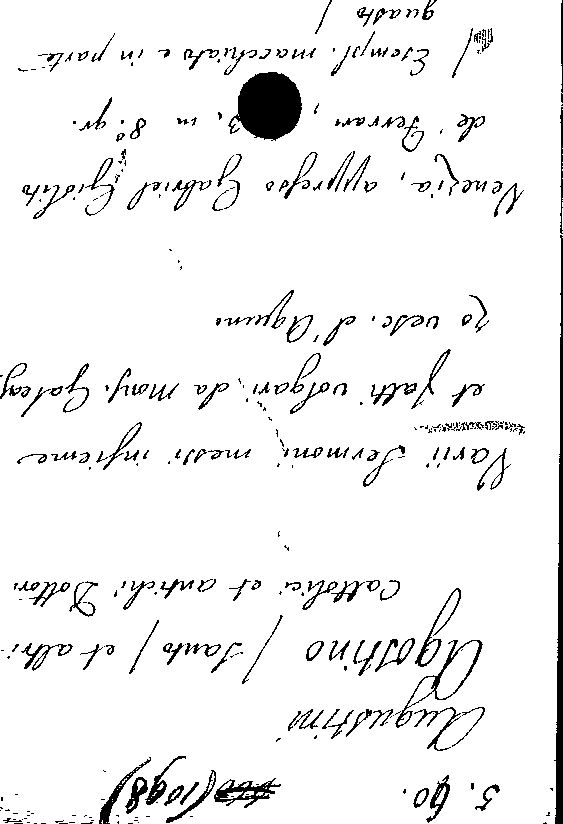 5. G. (1098)
Augustini
Agostino / santo / et altri
Cattolici et antichi Dottori
Varii Sermoni messi insieme
et fatti volgari da Mons. Galeaz,
zo vesc. d'Aquino
Venezia, appresso Gabriel Giolito
de' Ferrari, in 8º. gr.
/ Esempl. macchiato e in parte
guasto /